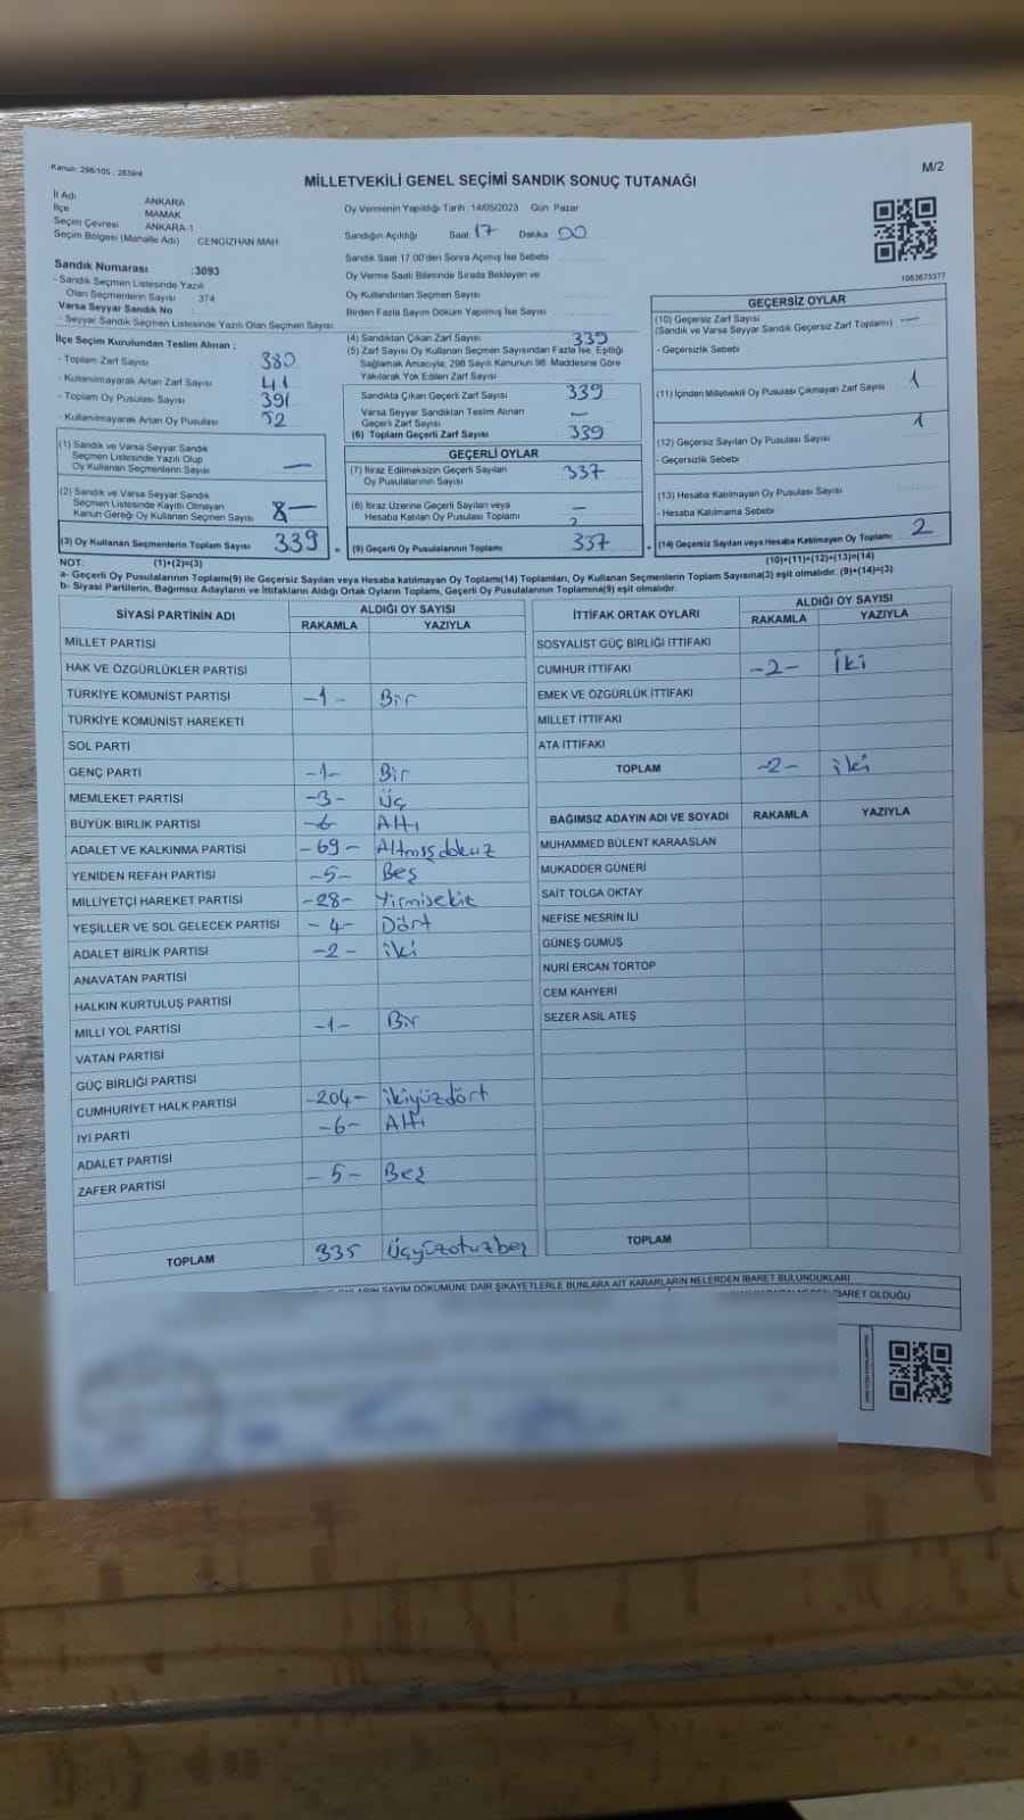 Kanun: 298/105, 2839/4
M/2
MİLLETVEKİLİ GENEL SEÇİMİ SANDIK SONUÇ TUTANAĞI
İl Adı ANKARA
İlçe MAMAK
Seçim Çevresi ANKARA 1
Seçim Bölgesi (Mahalle Adı) CENGİZHAN MAH.
Sandık Numarası :3093
- Sandık Seçmen Listesinde Yazılı
Olan Seçmenlerin Sayısı 374
Varsa Seyyar Sandık No :
- Seyyar Sandık Seçmen Listesinde Yazılı Olan Seçmen Sayısı
İlçe Seçim Kurulundan Teslim Alınan :
- Toplam Zarf Sayısı 380
- Kullanılmayarak Artan Zarf Sayısı 41
- Toplam Oy Pusulası Sayısı 391
- Kullanılmayarak Artan Oy Pusulası 52
(1) Sandık ve Varsa Seyyar Sandık
Seçmen Listesinde Yazılı Olup
Oy Kullanan Seçmenlerin Sayısı —
(2) Sandık ve Varsa Seyyar Sandık
Seçmen Listesinde Kayıtlı Olmayan
Kanun Gereği Oy Kullanan Seçmen Sayısı 8—
(3) Oy Kullanan Seçmenlerin Toplam Sayısı 339
Oy Vermenin Yapıldığı Tarih :14/05/2023 Gün: Pazar
Sandığın Açıldığı Saat 17 Dakika 00
Sandık Saat 17.00'den Sonra Açılmış İse Sebebi
Oy Verme Saati Bitiminde Sırada Bekleyen ve
Oy Kullandırılan Seçmen Sayısı
Birden Fazla Sayım Döküm Yapılmış İse Sayısı
(4) Sandıktan Çıkan Zarf Sayısı 339
(5) Zarf Sayısı Oy Kullanan Seçmen Sayısından Fazla İse, Eşitliği
Sağlamak Amacıyla; 298 Sayılı Kanunun 98. Maddesine Göre
Yakılarak Yok Edilen Zarf Sayısı
Sandıkta Çıkan Geçerli Zarf Sayısı 339
Varsa Seyyar Sandıktan Teslim Alınan
Geçerli Zarf Sayısı —
(6) Toplam Geçerli Zarf Sayısı 339
GEÇERLİ OYLAR
(7) İtiraz Edilmeksizin Geçerli Sayılan
Oy Pusulalarının Sayısı 337
(8) İtiraz Üzerine Geçerli Sayılan veya
Hesaba Katılan Oy Pusulası Toplamı —
(9) Geçerli Oy Pusulalarının Toplamı 337
1063675377
GEÇERSİZ OYLAR
(10) Geçersiz Zarf Sayısı —
(Sandık ve Varsa Seyyar Sandık Geçersiz Zarf Toplamı)
- Geçersizlik Sebebi
(11) İçinden Milletvekili Oy Pusulası Çıkmayan Zarf Sayısı 1
1
(12) Geçersiz Sayılan Oy Pusulası Sayısı
- Geçersizlik Sebebi
(13) Hesaba Katılmayan Oy Pusulası Sayısı
- Hesaba Katılmama Sebebi
(14) Geçersiz Sayılan veya Hesaba Katılmayan Oy Toplamı 2
NOT: (1)+(2)=(3) (10)+(11)+(12)+(13)=(14)
a- Geçerli Oy Pusulalarının Toplamı(9) ile Geçersiz Sayılan veya Hesaba katılmayan Oy Toplamı(14) Toplamları, Oy Kullanan Seçmenlerin Toplam Sayısına(3) eşit olmalıdır. (9)+(14)=(3)
b- Siyasi Partilerin, Bağımsız Adayların ve İttifakların Aldığı Ortak Oyların Toplamı, Geçerli Oy Pusulalarının Toplamına(9) eşit olmalıdır.
SİYASİ PARTİNİN ADI ALDIĞI OY SAYISI
RAKAMLA YAZIYLA
MİLLET PARTİSİ
HAK VE ÖZGÜRLÜKLER PARTİSİ
TÜRKİYE KOMÜNİST PARTİSİ -1- Bir
TÜRKİYE KOMÜNİST HAREKETİ
SOL PARTİ
GENÇ PARTİ -1- Bir
MEMLEKET PARTİSİ -3- Üç
BÜYÜK BİRLİK PARTİSİ -6 Altı
ADALET VE KALKINMA PARTİSİ -69- Altmışdokuz
YENİDEN REFAH PARTİSİ -5- Beş
MİLLİYETÇİ HAREKET PARTİSİ -28- Yirmisekiz
YEŞİLLER VE SOL GELECEK PARTİSİ -4- Dört
ADALET BİRLİK PARTİSİ -2- iki
ANAVATAN PARTİSİ
HALKIN KURTULUŞ PARTİSİ
MİLLİ YOL PARTİSİ -1- Bir
VATAN PARTİSİ
GÜÇ BİRLİĞİ PARTİSİ
CUMHURİYET HALK PARTİSİ -204- ikiyüzdört
İYİ PARTİ -6- Altı
ADALET PARTİSİ
ZAFER PARTİSİ -5- Beş
TOPLAM 335 Üçyüzotuzbeş
İTTİFAK ORTAK OYLARI ALDIĞI OY SAYISI
RAKAMLA YAZIYLA
SOSYALİST GÜÇ BİRLİĞİ İTTİFAKI
CUMHUR İTTİFAKI -2- İki
EMEK VE ÖZGÜRLÜK İTTİFAKI
MİLLET İTTİFAKI
ATA İTTİFAKI
TOPLAM -2- iki
BAĞIMSIZ ADAYIN ADI VE SOYADI RAKAMLA YAZIYLA
MUHAMMED BÜLENT KARAASLAN
MUKADDER GÜNERİ
SAİT TOLGA OKTAY
NEFİSE NESRİN İLİ
GÜNEŞ GÜMÜŞ
NURİ ERCAN TORTOP
CEM KAHYERİ
SEZER ASİL ATEŞ
TOPLAM
SAYIM DÖKÜMÜNE DAİR ŞİKAYETLERLE BUNLARA AİT KARARLARIN NELERDEN İBARET BULUNDUKLARI
İBARET OLDUĞU